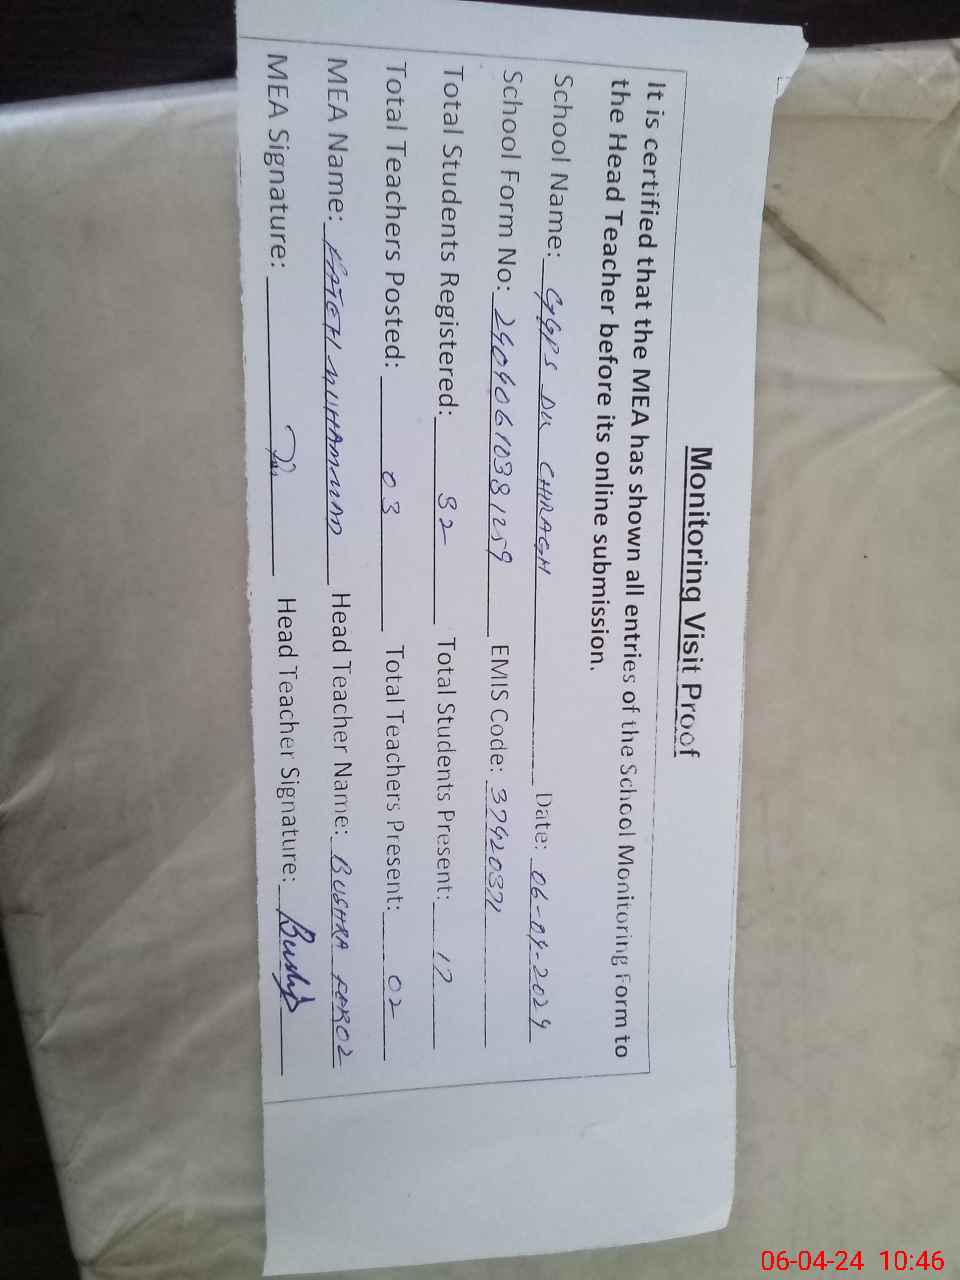 Monitoring Visit Proof
It is certified that the MEA has shown all entries of the School Monitoring Form to
the Head Teacher before its online submission.
School Name: GGPS DK CHIRAGH Date: 06-04-2024
School Form No: 24040610381259 EMIS Code: 37420371
Total Students Registered: 82 Total Students Present: 17
Total Teachers Posted: 03 Total Teachers Present: 02
MEA Name: FATEH MUHAMMAD Head Teacher Name: BUSHRA FEROZ
MEA Signature: Head Teacher Signature: Bushra
06-04-24 10:46